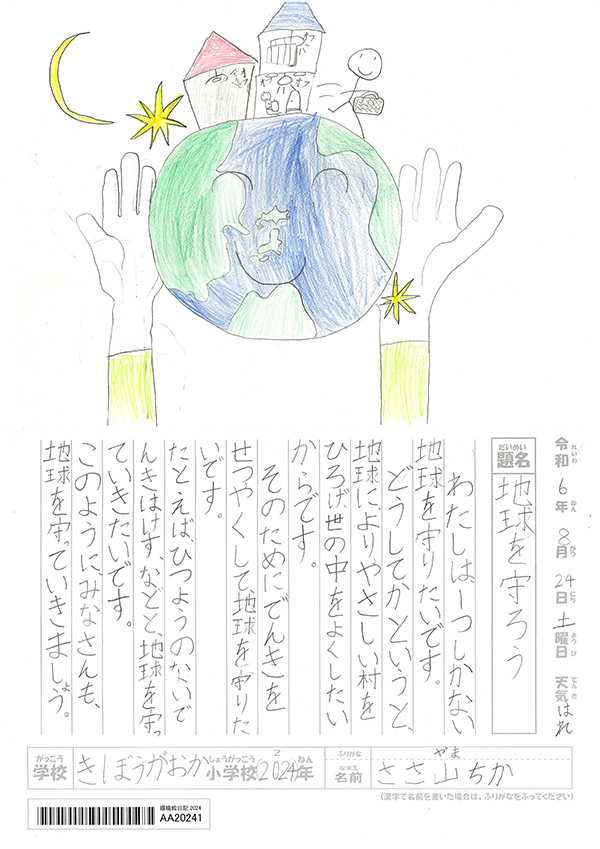 オフ
オフ
オフ
オフ
令和6年8月24日土曜日 天気はれ
れいわ ねん がつ にち ようび てんき
だいめい
題名
地球を守ろう
わたしは一つしかない
地球を守りたいです。
どうしてかというと、
地球によりやさしい村を
ひろげ世の中をよくしたい
からです。
そのためにでんきを
せつやくして地球を守りた
いです。
たとえば、ひつようのないで
んきはけす、などと、地球を守っ
ていきたいです。
このようにみなさんも、
地球を守っていきましょう。
がっこう
学校
きぼうがおか
しょうがっこう
小学校
2
(2024)
ねん
年
ふりがな
やま
なまえ
名前
ささ山ちか
(漢字で名前を書いた場合は、ふりがなをふってください)
環境絵日記 2024
AA20241